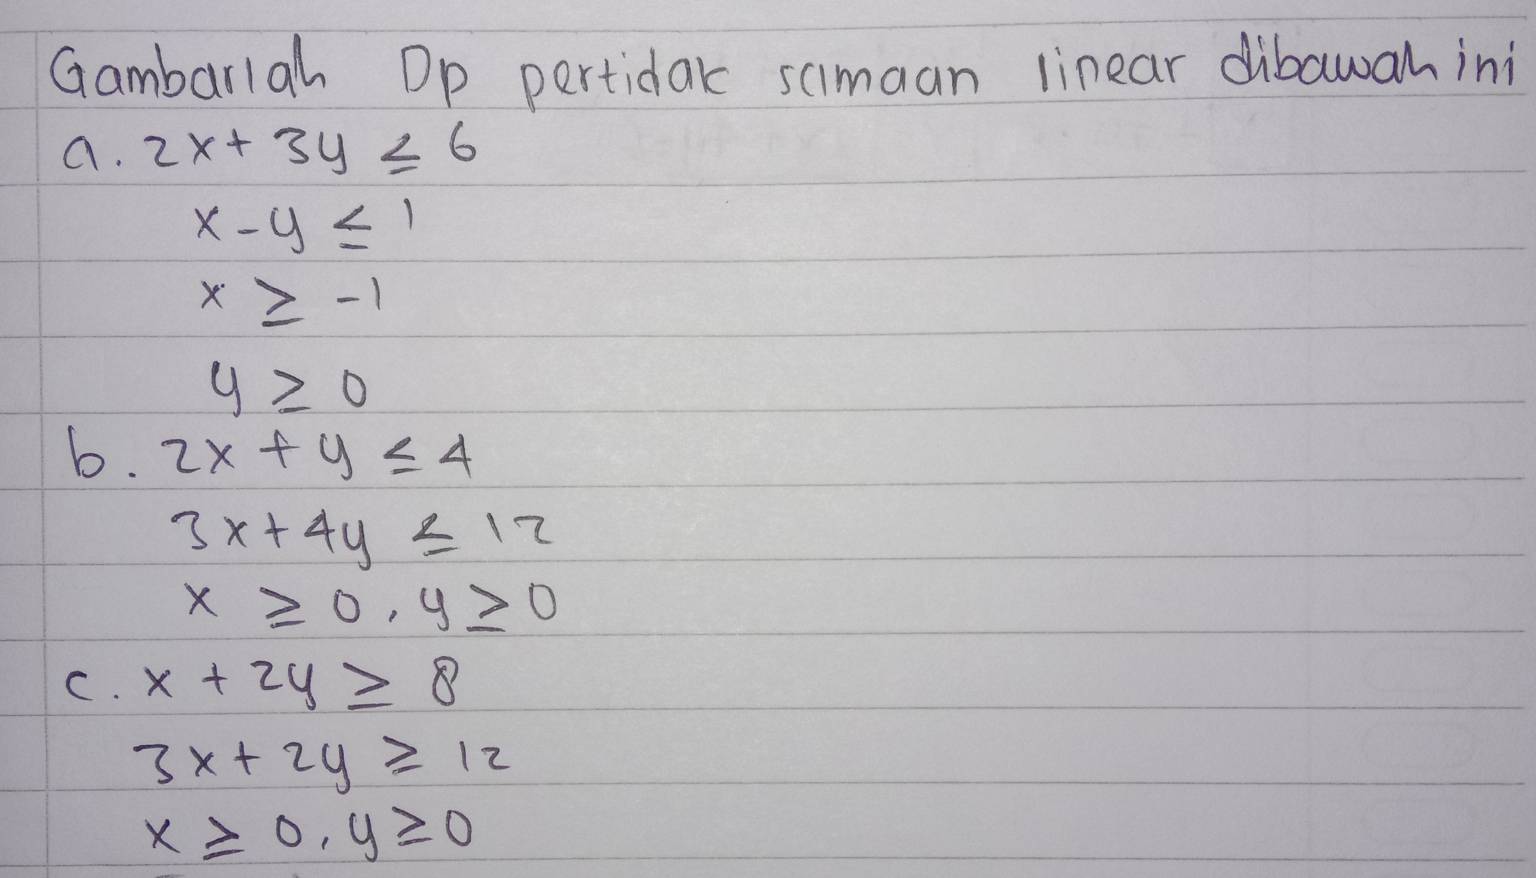 Gambarlah Dp pertidak samaan linear dibawah ini
a. 2x + 3y ≤ 6
x - y ≤ 1
x ≥ -1
y ≥ 0
b. 2x + y ≤ 4
3x + 4y ≤ 12
x ≥ 0, y ≥ 0
c. x + 2y ≥ 8
3x + 2y ≥ 12
x ≥ 0, y ≥ 0